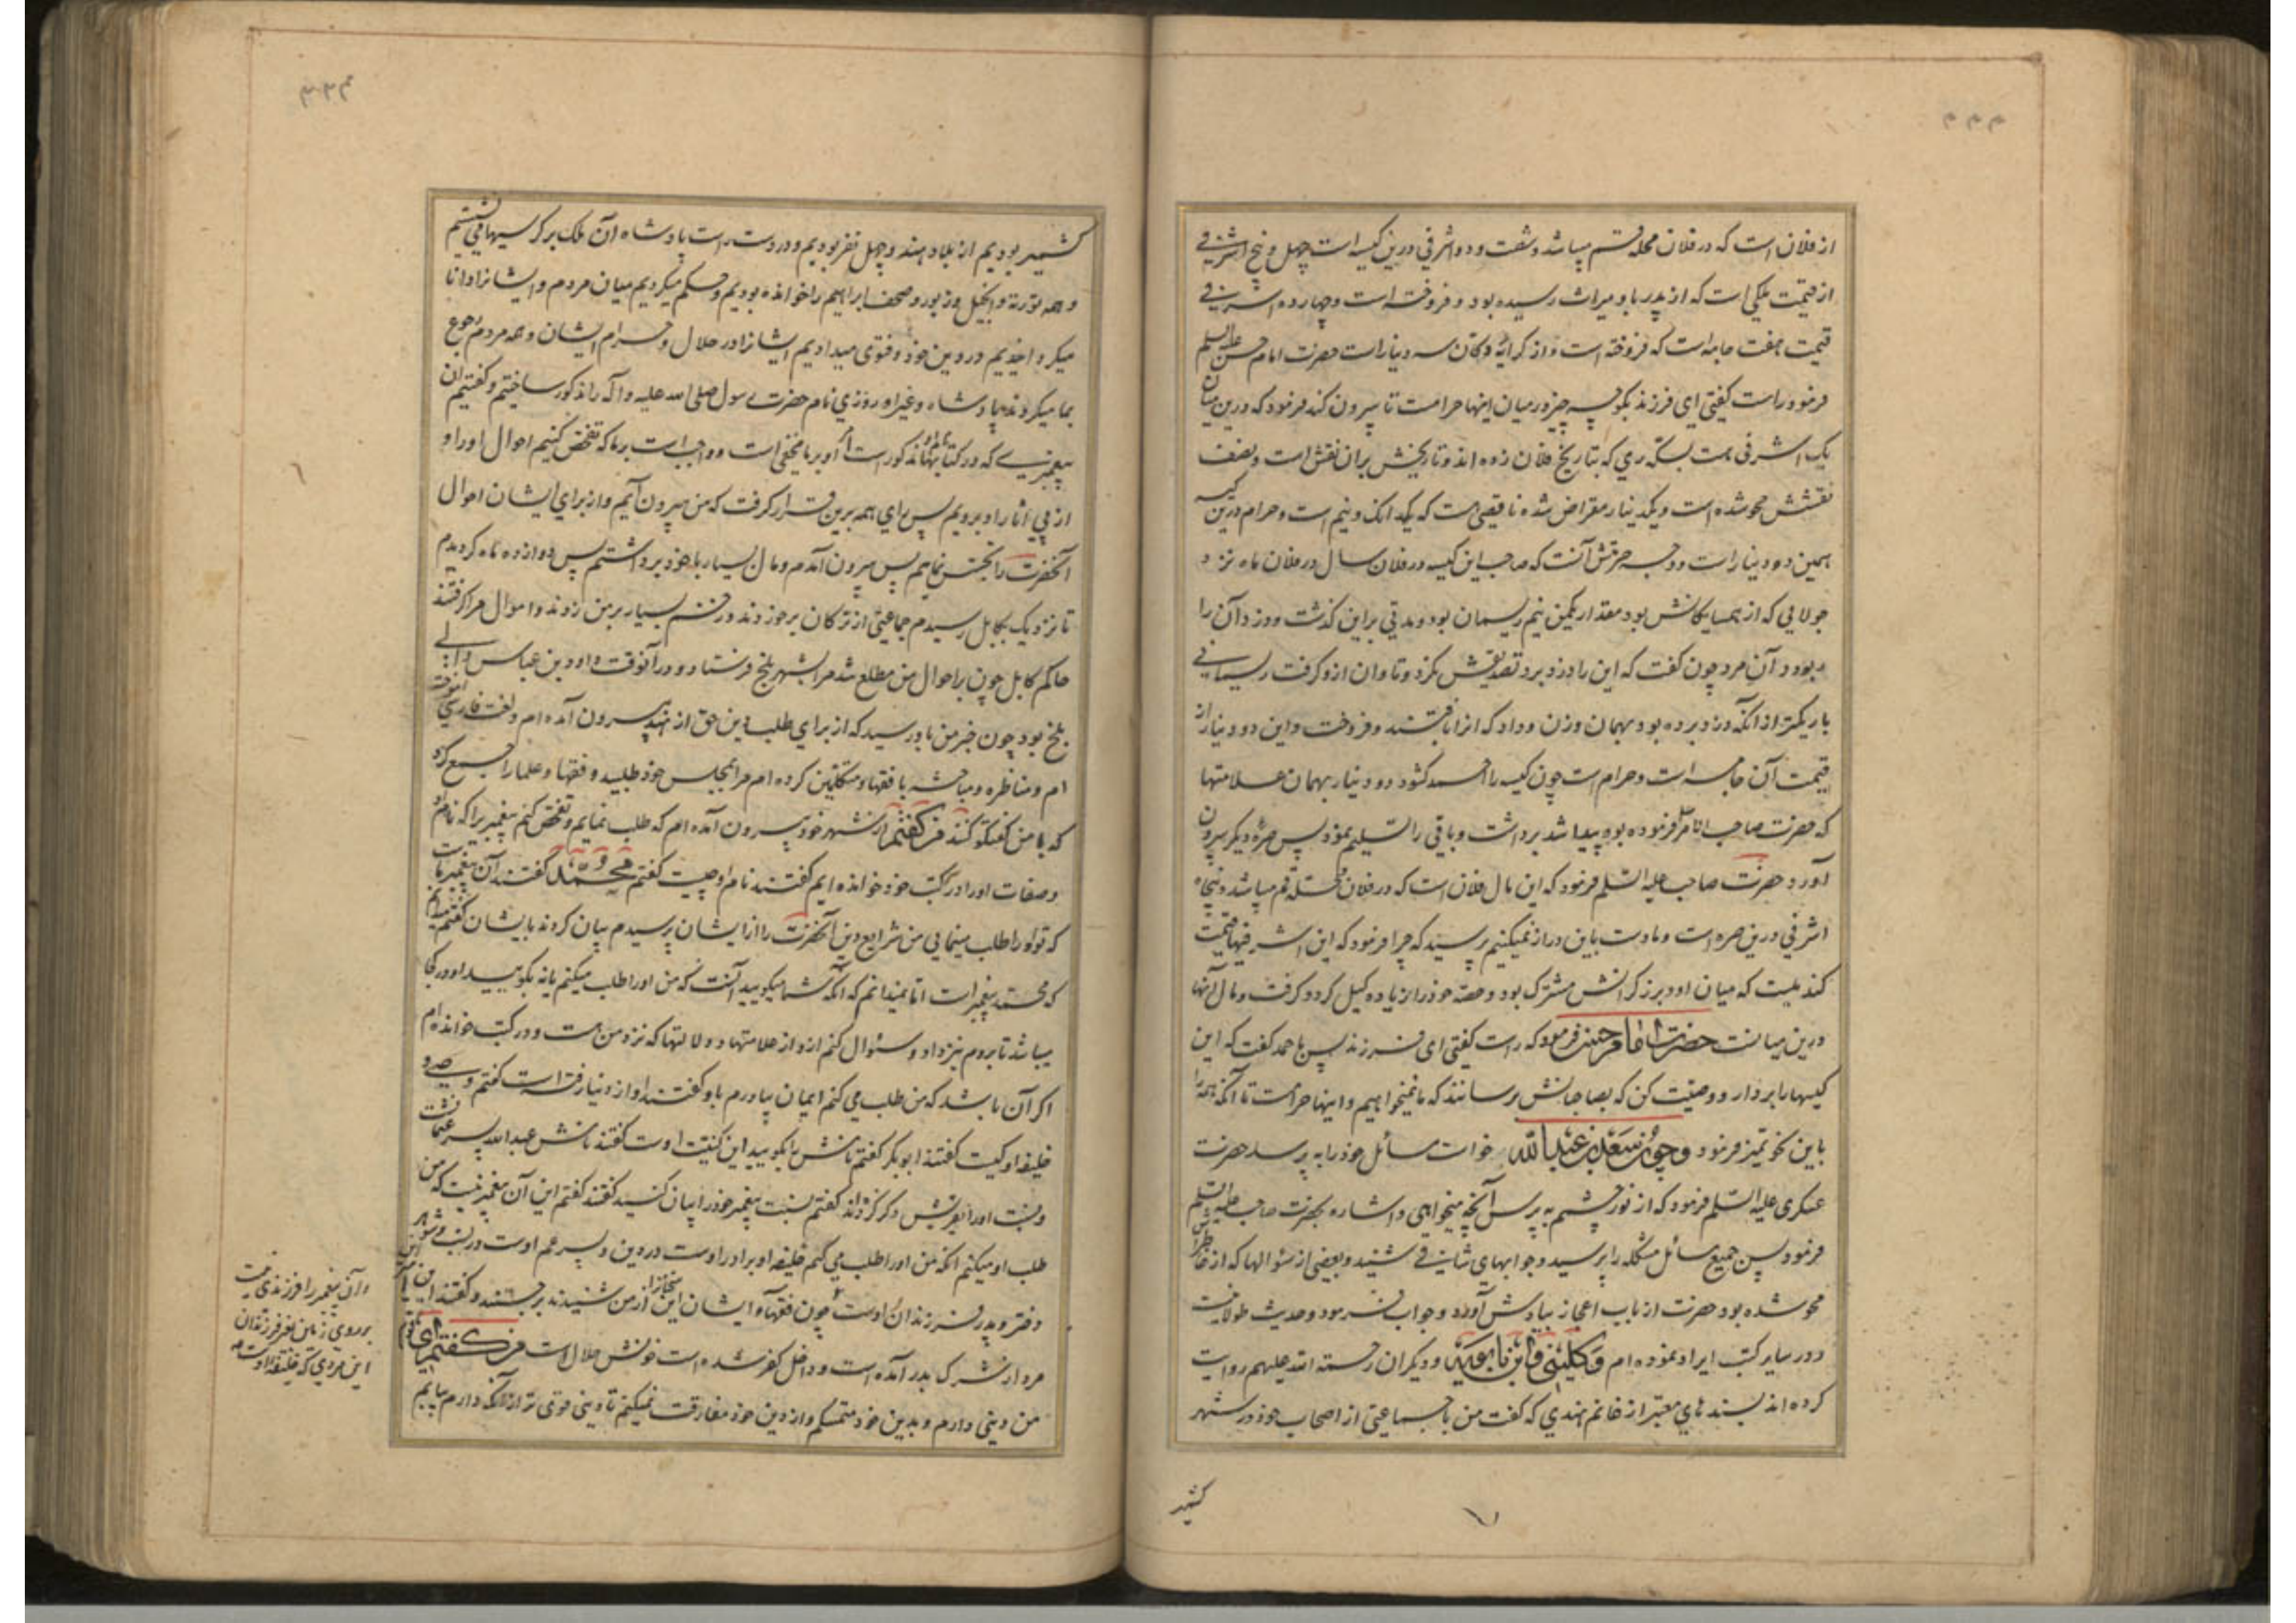 از فلان است که در فلان محله قم میباشد و شصت و دو اشرفی درین کیسه است چهل و پنج اشرفی
از قیمت ملکی است که از پدر باو میراث رسیده بود و فروخته است و چهارده اشرفی
قیمت هفت جامه است که فروخته است و از کرایه دکان سه دینار است حضرت امام حسن علیه السلم
فرمود راست گفتی ای فرزند بگو چه چیز در میان اینها حرامست تا بیرون کند فرمود که درین میان
یک اشرفی هست بسکه ری که بتاریخ فلان زده اند و تاریخش بران نقش است و نصف
نقشش محو شده است و یکدینار مقراض شده ناقصی هست که یکدانک و نیم است و حرام درین کیسه
همین دو دینار است و وجه حرمتش آنست که صاحب این کیسه در فلان سال در فلان ماه نزد
جولایی که از همسایکانش بود مقدار یکمن و نیم ریسمان بود و مدتی براین گذشت و دزد آن را
ربود و آن مرد چون گفت که این را دزد برد تصدیقش نکرد و تاوان ازو گرفت ریسمانی
باریکتر از آنکه دزد برده بود بهمان وزن و داد که انرا بافتند و فروخت و این دو دینار از
قیمت آن جامه است و حرام است چون کیسه را احمد کشود دو دینار بهمان علامتها
که حضرت صاحب الامر فرموده بود پیدا شد برداشت و باقی را تسلیم نمود پس صره دیگر بیرون
آورد حضرت صاحب علیه السلم فرمود که این مال فلان است که در فلان محله قم میباشد و پنجاه
اشرفی درین صره است و ما دست باین دراز نمیکنیم پرسید که چرا فرمود که این اشرفیها قیمت
کندمیست که میان او و برزکرانش مشترک بود و حصه خود را زیاده کیل کرد و گرفت و مال آنها
درین میانست حضرت امام حسن فرمود که راست گفتی ای فرزند پس باحمد گفت که این
کیسها را بردار و وصیت کن که بصاحبانش برسانند که ما نمیخواهیم و اینها حرامست تا آنکه همه را
باین نحو تمیز فرمود و چون سعد بن عبد الله خواست مسائل خود را به پرسد حضرت
عسکری علیه السلم فرمود که از نور چشم به پرس آنچه میخواهی و اشاره بحضرت صاحب علیه السلم
فرمود پس جمیع مسائل مشکله را پرسید و جوابهای شافی شنید و بعضی از سئوالها که از خاطرش
محو شده بود حضرت از باب اعجاز بیادش آورد و جواب فرمود و حدیث طولانیست
و در سایر کتب ایراد نموده ام و کلینی و ابن بابویه و دیکران رحمة الله علیهم روایت
کرده اند بسند های معتبر از غانم هندی که گفت من با جماعتی از اصحاب خود در شهر
کشمیر
کشمیر بودیم از بلاد هند و چهل نفر بودیم و در دست راست پادشاه آن ملک بر کرسیها می نشستیم
و همه توریة و انجیل و زبور و صحف ابراهیم را خوانده بودیم و حکم میکردیم میان مردم و ایشانرا دانا
میکردانیدیم در دین خود و فتوی میدادیم ایشانرا در حلال و حرام ایشان و همه مردم رجوع
بما میکردند پادشاه و غیر او روزی نام حضرت رسول صلی الله علیه و آله را مذکور ساختیم و گفتیم آن
پیغمبری که در کتابها مذکور است امر او بر ما مخفی است و واجب است بر ما که تفحص کنیم احوال او را و
از پی آثار او برویم پس رای همه برین قرار گرفت که من بیرون آیم و از برای ایشان احوال
آنحضرت را تجسس نمایم پس بیرون آمدم و مال بسیار با خود برداشتم پس دوازده ماه گردیدم
تا نزدیک بکابل رسیدم جماعتی از ترکان برخوردند و زخم بسیار بر من زدند و اموال مرا گرفتند
حاکم کابل چون بر احوال من مطلع شد مرا بشهر بلخ فرستاد و در آنوقت داود بن عباس والی
بلخ بود چون خبر من باو رسید که از برای طلب دین حق از هند بیرون آمده ام و لغت فارسی آموخته
ام و مناظره و مباحثه با فقها و متکلمین کرده ام مرا بمجلس خود طلبید و فقها و علما را جمع کرد
که با من گفتگو کنند من گفتم از شهر خود بیرون آمده ام که طلب نمایم و تفحص کنم پیغمبریرا که نام او
و صفات او را در کتب خود خوانده ایم گفتند نام او چیست گفتم محمد گفتند آن پیغمبر ماست
که تو او را طلب مینمایی من شرایع دین آنحضرت را از ایشان پرسیدم بیان کردند بایشان گفتم میدانم
که محمد پیغمبر است اما نمیدانم که آنکه شما میگویید آنست که من او را طلب میکنم یا نه بگویید او در کجا
میباشد تا بروم بنزد او و سئوال کنم ازو از علامتها و دلالتها که نزد من هست و در کتب خوانده ام
اگر آن باشد که من طلب می کنم ایمان بیاورم باو گفتند او از دنیا رفته است گفتم وصی و
خلیفه او کیست گفتند ابوبکر گفتم نامش را بگویید این کنیت اوست گفتند نامش عبدالله پسر عثمانست
و نسب او را بقریش ذکر کردند گفتم نسب پیغمبر خود را بیان کنید گفتند گفتم این آن پیغمبر نیست که من
طلب او میکنم آنکه من او را طلب می کنم خلیفه او برادر اوست در دین و پسر عم اوست در نسب و شوهر
دختر و پدر فرزندان اوست چون فقها و ایشان این سخنانرا از من شنیدند برجستند و گفتند ای امیر این
مرد از شرک بدر آمده است و داخل کفر شده است خونش حلال است من گفتم ای قوم
من دینی دارم و بدین خود متمسکم و از دین خود مفارقت نمیکنم تا دینی قوی تر از آنکه دارم بیابم
و آن پیغمبر را فرزندی نیست
بر روی زمین بغیر فرزندان
این مردی که خلیفه اوست